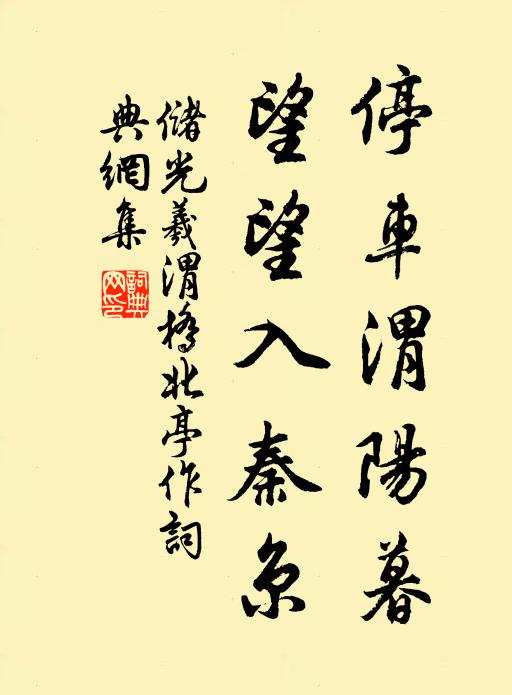 停車渭陽暮
望望入秦京
儲光羲渭橋北亭作詞
典網集
詞典網印